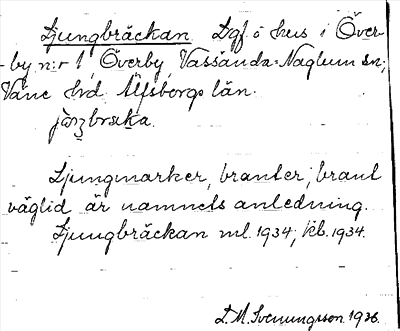 Ljungbräckan. Lgf. o hus i Över-
by n:r 1, Överby Vassända-Naglum sn;
Väne hrd Älfsborgs län.
Ljungmarker, branter; brant
väglid är namnets anledning.
Ljungbräckan ml. 1934; kb. 1934.
L. M. Svenungsson 1936.